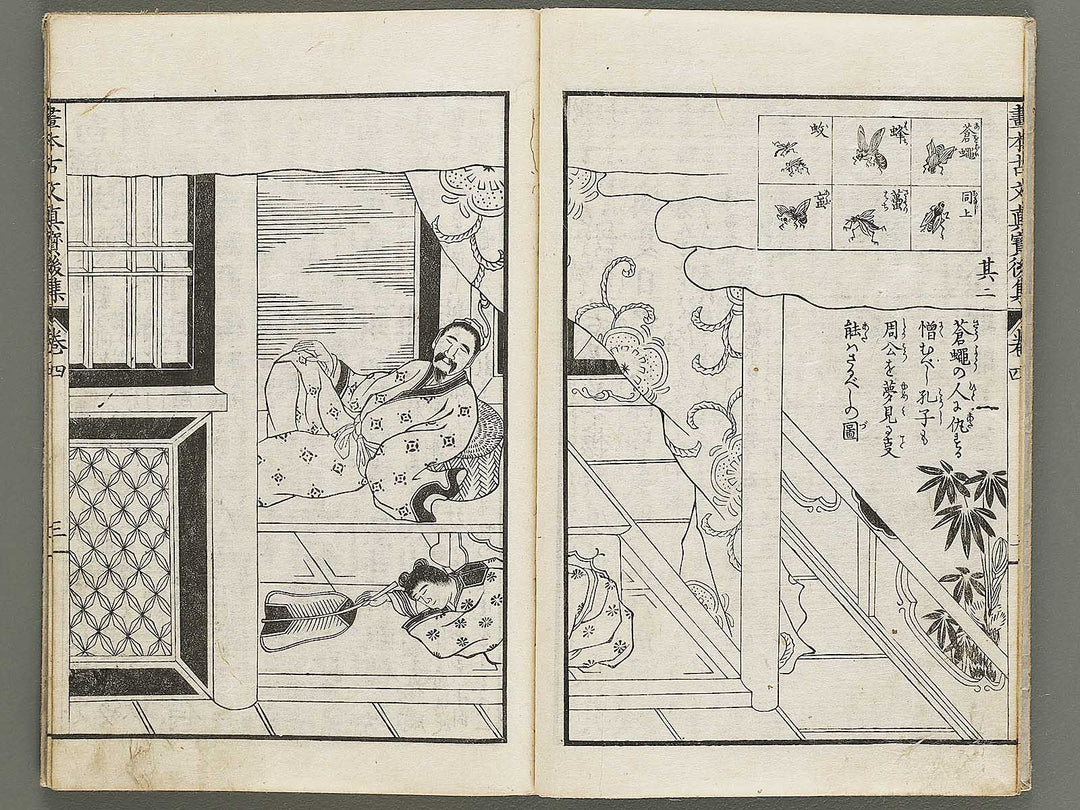 畫本古文真寶後集
卷四
蒼蠅
同上
蜂
蚊
其二
蒼蠅の人に仇する
憎むべし孔子も
周公を夢見る事
能はざるべしの圖
畫本古文真寶後集
卷四
三